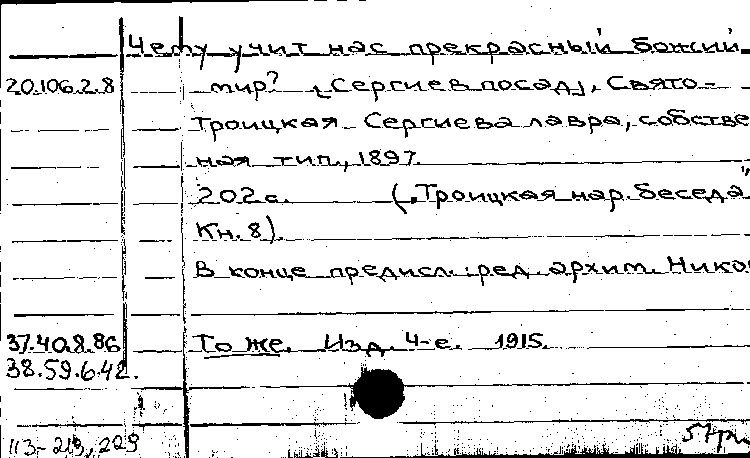 Чему учит нас прекрасный божий
20.106.2.8 мир? [Сергиев посад], Свято-
Троицкая Сергиева лавра, собстве
ная тип., 1897.
202 с. („Троицкая нар. беседа"
Кн. 8).
В конце предисл.: ред. архим. Нико
37.40.8.86 То же. Изд. 4-е. 1915.
38.59.6.42.
113-219, 229